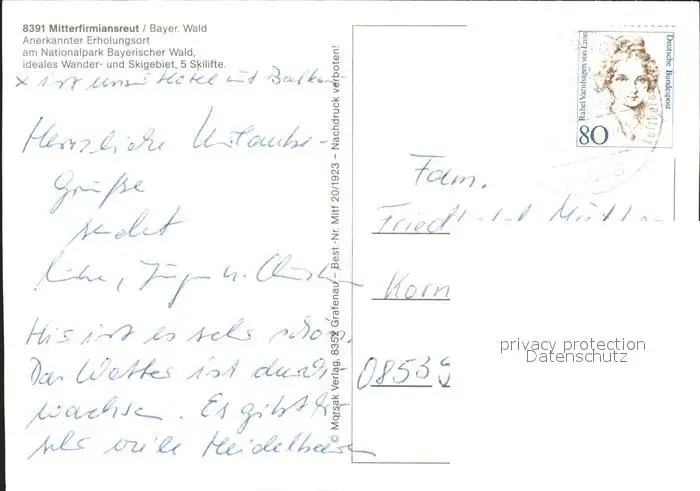 8391 Mitterfirmiansreut / Bayer. Wald
Anerkannter Erholungsort
am Nationalpark Bayerischer Wald,
ideales Wander- und Skigebiet, 5 Skilifte.
x ist unser Hotel mit Balkon
Herzliche Urlaubs-
Grüße
sendet
Jürgen u.
Hier ist es sehr schön.
Das Wetter ist durch-
wachsen. Es gibt
sehr viele Heidelbeeren
© Morsak Verlag, 8352 Grafenau - Best.-Nr. Mitf 20/1923 – Nachdruck verboten!
Deutsche Bundespost
Rahel Varnhagen von Ense
80
Fam.
Korn
08539
privacy protection
Datenschutz